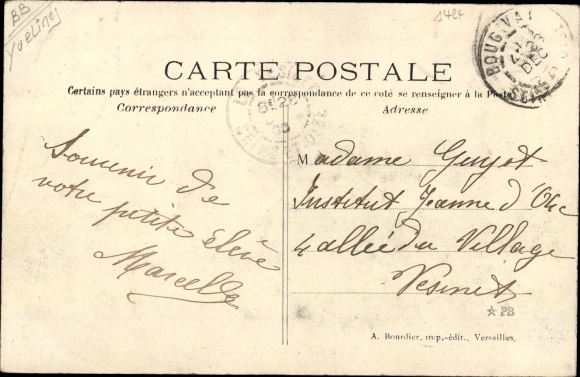 BB
Yvelines
1484
BOUGIVAL
CARTE POSTALE
Certains pays étrangers n'acceptant pas la correspondance de ce coté se renseigner à la Poste
Correspondance
Adresse
Souvenir de
votre petite élève
Marcelle
Madame Guyot
Institut Jeanne d'Arc
4 allée du Village
Vesinet
PB
A. Bourdier, imp.-édit., Versailles.